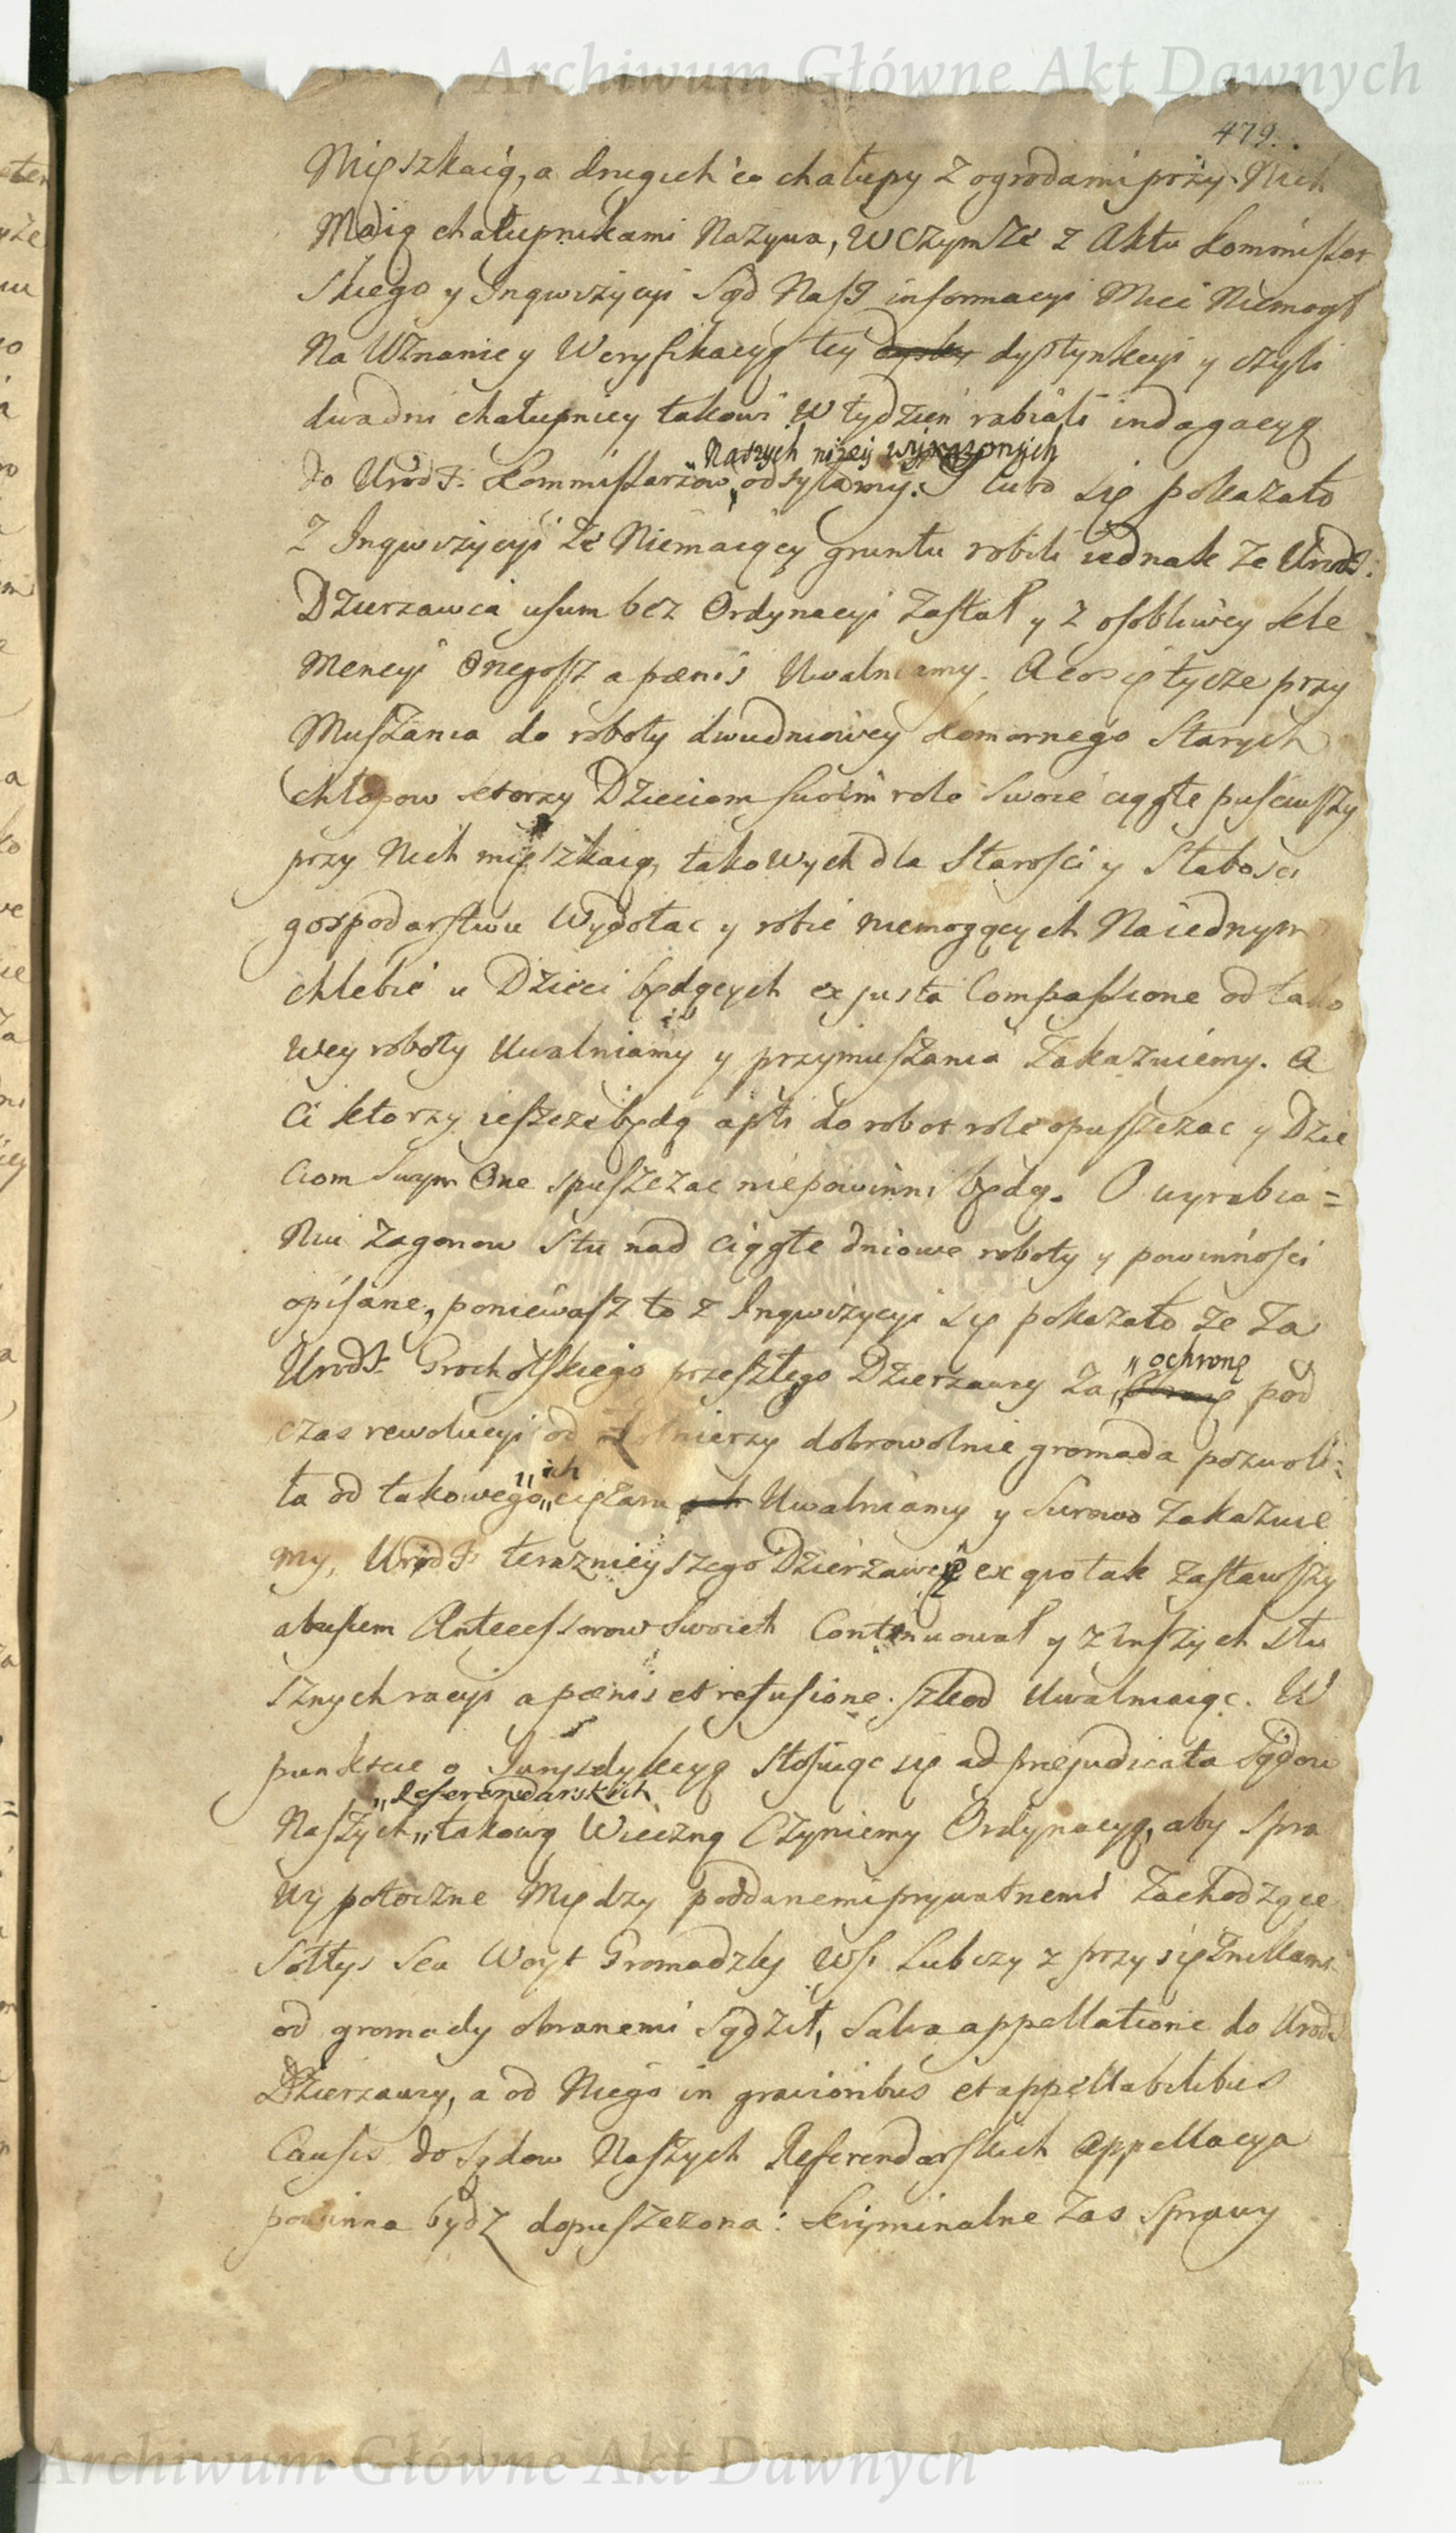 Archiwum Główne Akt Dawnych
479.
Mięszkaią, a drugich co chałupy z ogrodami przy Nich
Maią chałupnikami Nazywa, w czym że z Aktu kommissar
skiego y Inqwizycyi Sąd Nasz informacyi Mieć Niemogł
Na Uznanie y Weryfikacyą tey dystynkcyi y czyli
dwa dni chałupnicy takowi w tydzień rabiali indagacyą
Naszych niżey wyrażonych
do Urodz: Kommissarzow, odsyłamy. I lubo się pokazało
z Inqwizycyi że Niemaiący gruntu robili iednak że Urodz:
Dzierzawca usum bez Ordynacyi zastał y z osobliwey kle
mencyi Onegosz a pænis Uwalniamy. A co się tycze przy
Muszania do roboty dwudniowey komornego Starych
chłopow ktorzy Dzieciom swoim role swoie ciągłe puściwszy
przy Nich mięszkaią, takowych dla Starości y Słabości
gospodarstwu Wydołac y robić niemogących Na iednym
chlebie u Dzieci będących ex justa Compassione od tako
wey roboty Uwalniamy y przymuszania Zakazuiemy. A
Ci ktorzy ieszcze będą apti do robot role opuszczac y Dzie
ciom Swym One spuszczac niepowinni będą. O wyrabia=
Niu Zagonow Stu nad ciągłe dniowe roboty y powinności
opisane, poniewasz to z Inqwizycyi się pokazało że Za
Urodz: Grocholskiego przeszłego Dzierzawcy Za „ochronę pod
czas rewolucyi od Żołnierzy dobrowolnie gromada pozwoli=
ła od takowego „ich ciężaru Uwalniamy y Surowo zakazuie
my, Urodz: teraznieyszego Dzierżawcę ex quo tak zastawszy
abusum Antecessorow swoich Continuował y z inszych słu
sznych racyi a pænis et refusione szkod Uwalniaiąc. W
punkcie o Jurysdykcyą Stosuiąc się ad præjudicata Sądow
„Referendarskich
Naszych „takową Wieczną Czyniemy Ordynacyą, aby spra
wy potoczne Między poddanemi prywatnemi Zachodzące
Sołtys Seu Woyt Gromadzki Wsi Lubczy z przysiężnikami
od gromady obranemi sądził, Salva appellatione do Urodz:
Dzierzawcy, a od Niego in gravioribus et appellabilibus
Causis do Sądow Naszych Referendarskich Appellacya
powinna bydz dopuszczona: kryminalne Zas Sprawy
Archiwum Główne Akt Dawnych